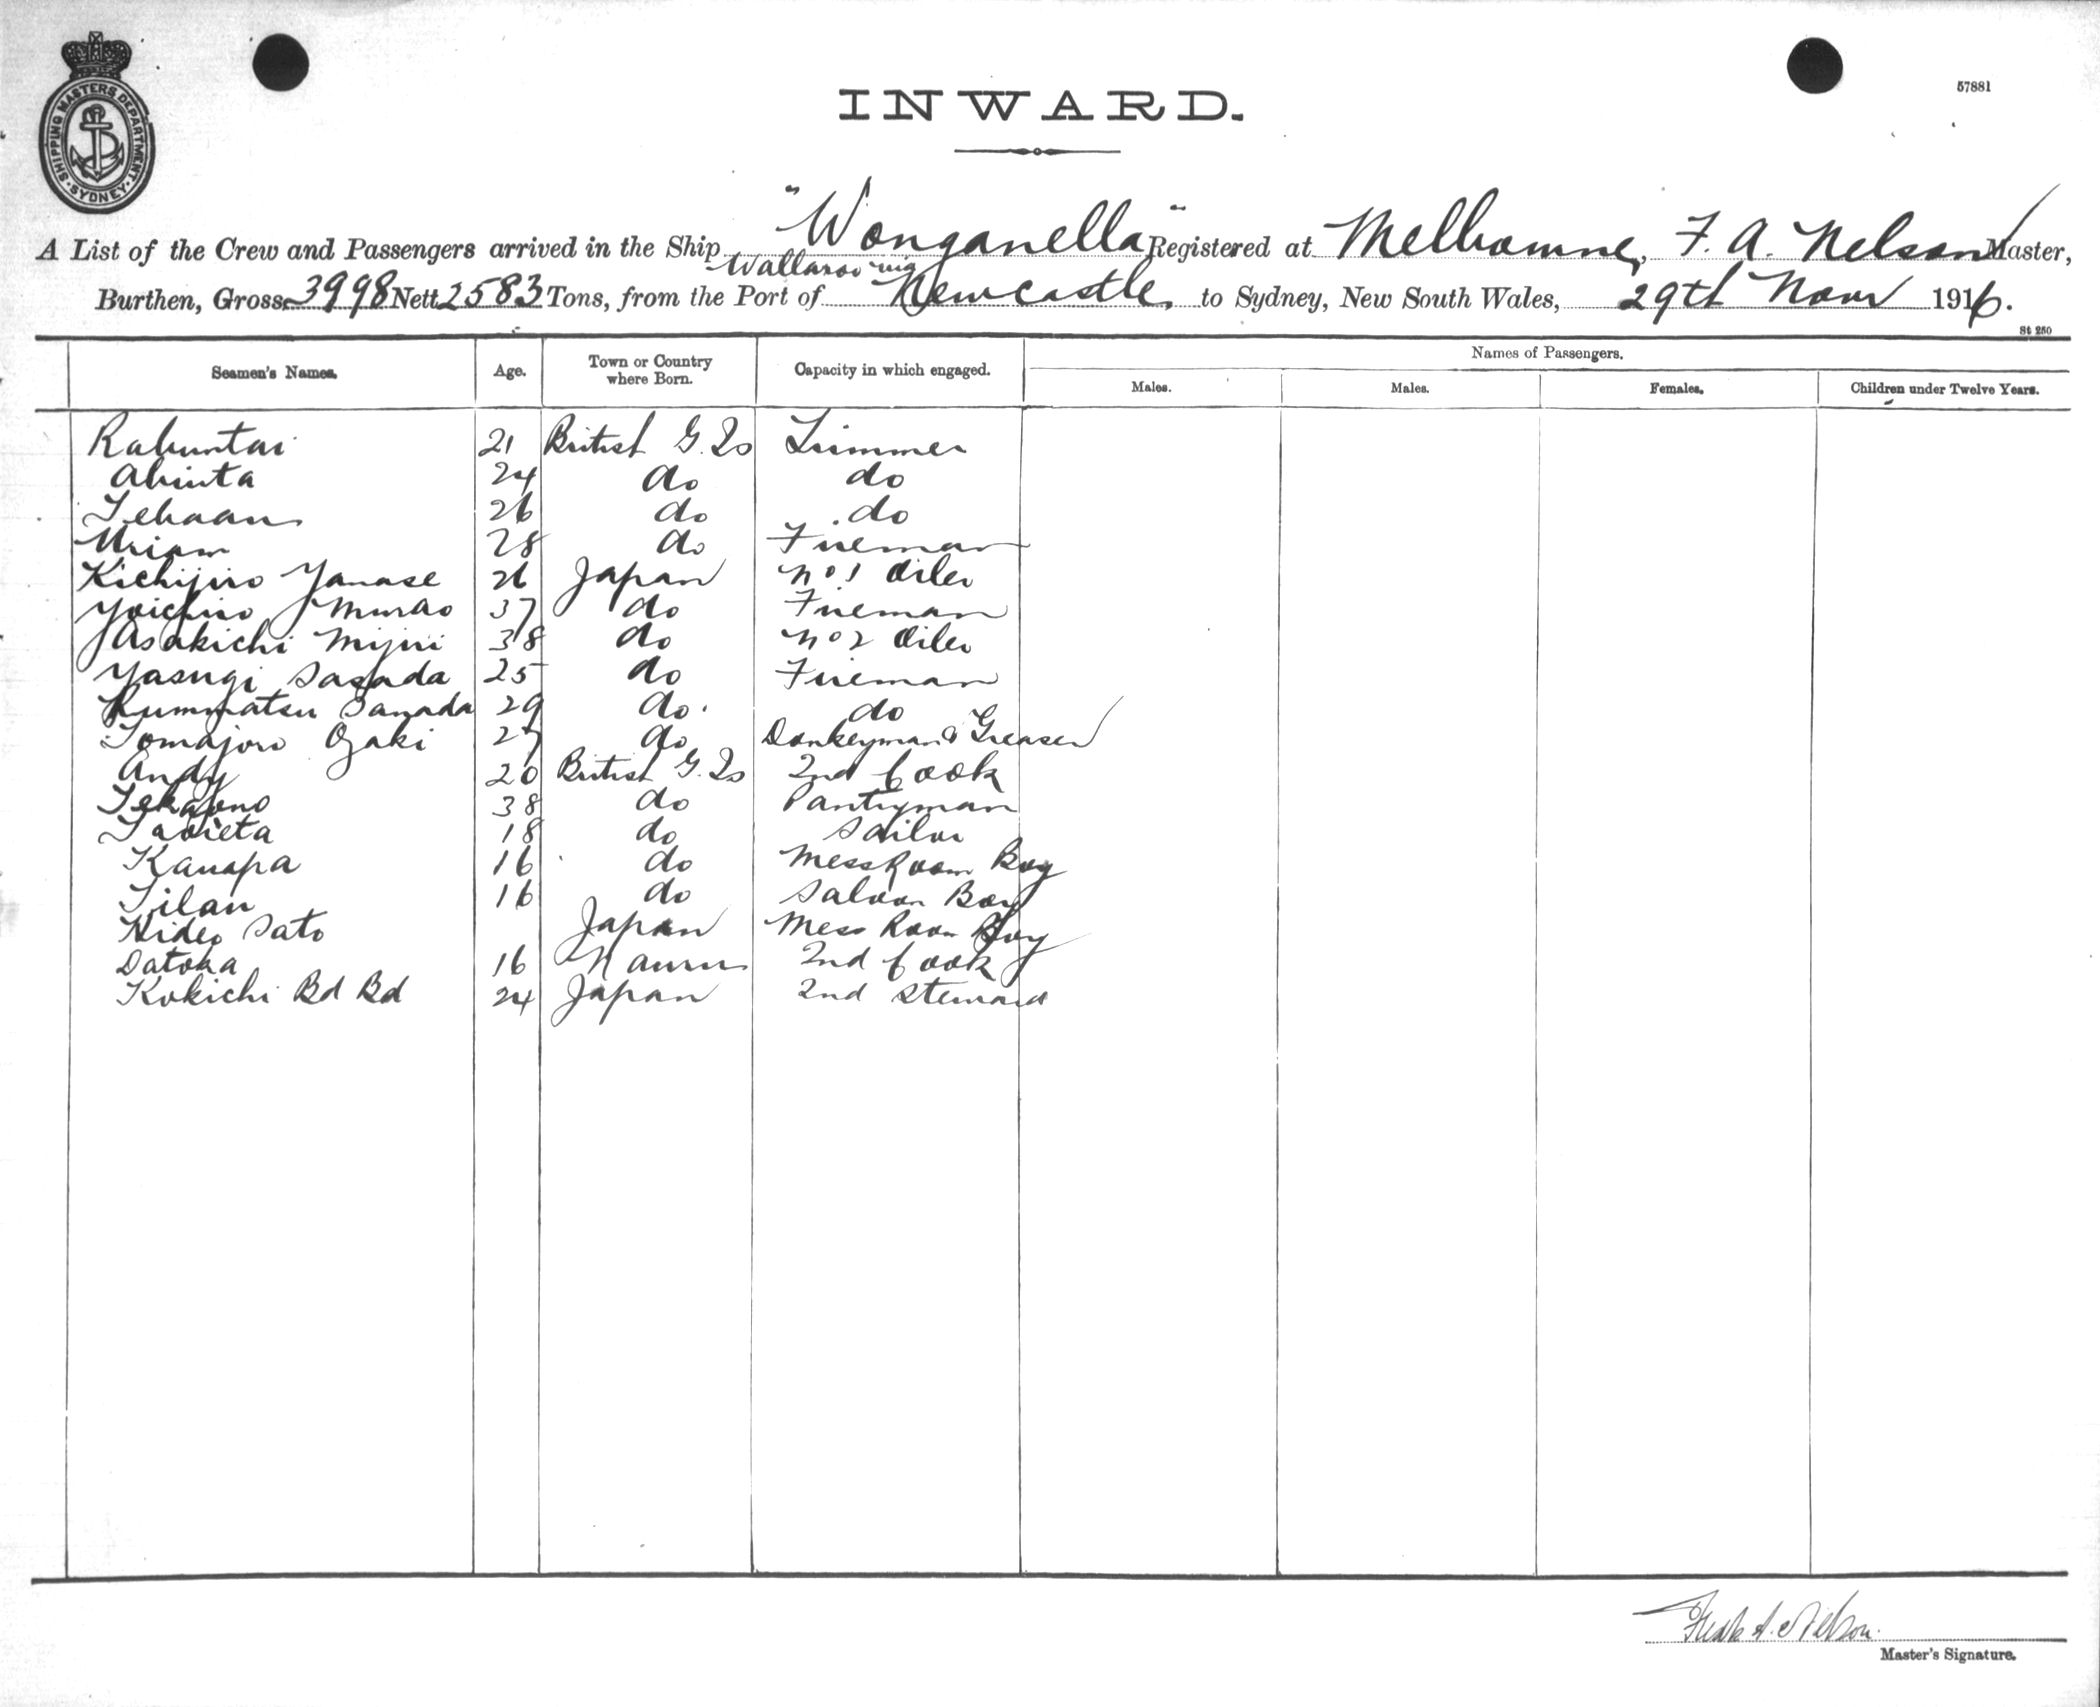 SHIPPING MASTERS DEPARTMENT
SYDNEY
57881
INWARD.
A List of the Crew and Passengers arrived in the Ship "Wonganella" Registered at Melbourne, F. A. Nelson Master,
Wallaroo via
Burthen, Gross 3998 Nett 2583 Tons, from the Port of Newcastle, to Sydney, New South Wales, 29th Novr 1916.
St 250
Seamen's Names. Age. Town or Country where Born. Capacity in which engaged. Names of Passengers.
Males. Males. Females. Children under Twelve Years.
Rabuntai 21 British G. Is Trimmer
Abinta 24 do do
Tebaan 26 do do
Uriam 28 do Fireman
Kichijiro Yanase 26 Japan No 1 Oiler
Yoichiro Murao 37 do Fireman
Asakichi Mijui 38 do No 2 Oiler
Yasugi Sasada 25 do Fireman
Kummatsu Sanada 29 do. do
Tomajoro Ozaki 27 do Donkeyman & Greaser
Andy 20 British G. Is 2nd Cook
Tekajeno 38 do Pantryman
Tavieta 18 do Sailor
Kanapa 16 do Mess Room Boy
Tilan 16 do Saloon Boy
Hideo Sato Japan Mess Room Boy
Datoka 16 Nauru 2nd Cook
Kokichi Bd Bd 24 Japan 2nd Steward
Fredk A. Nelson.
Master's Signature.